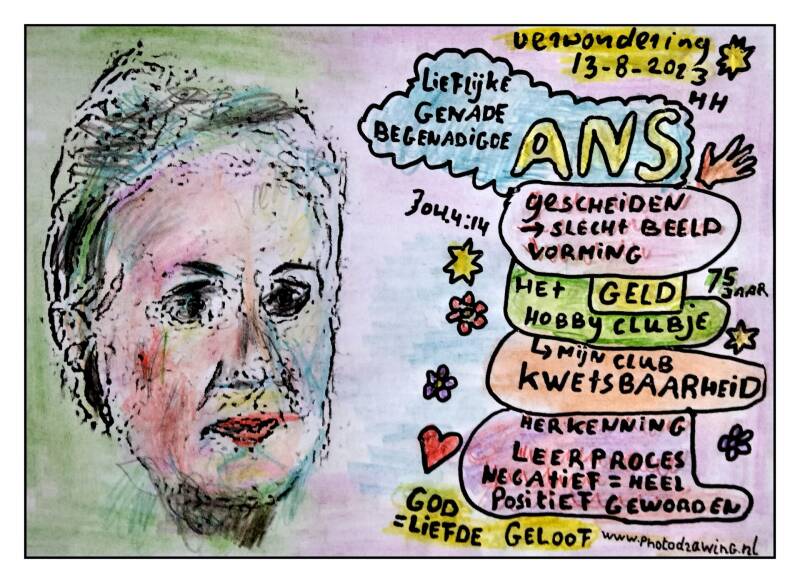 verwondering
13-8-2023
HH
LiEFLijKE
GENADE
BEGENADIGDE
ANS
Joh.4:14
gescHEiDEN
→ SLECHt BEELD
VORMiNG
HEt GELD
HOBBY CLUBjE
75
JAAR
↳ MijN CLUB
KWEtSBAARHEiD
HERKENNiNG
LEERPROCES
NEGAtiEF = HEEL
POSitiEF GEWORDEN
GOD
=LiEFDE GELOOF
www.PHOtODRAWiNG.NL